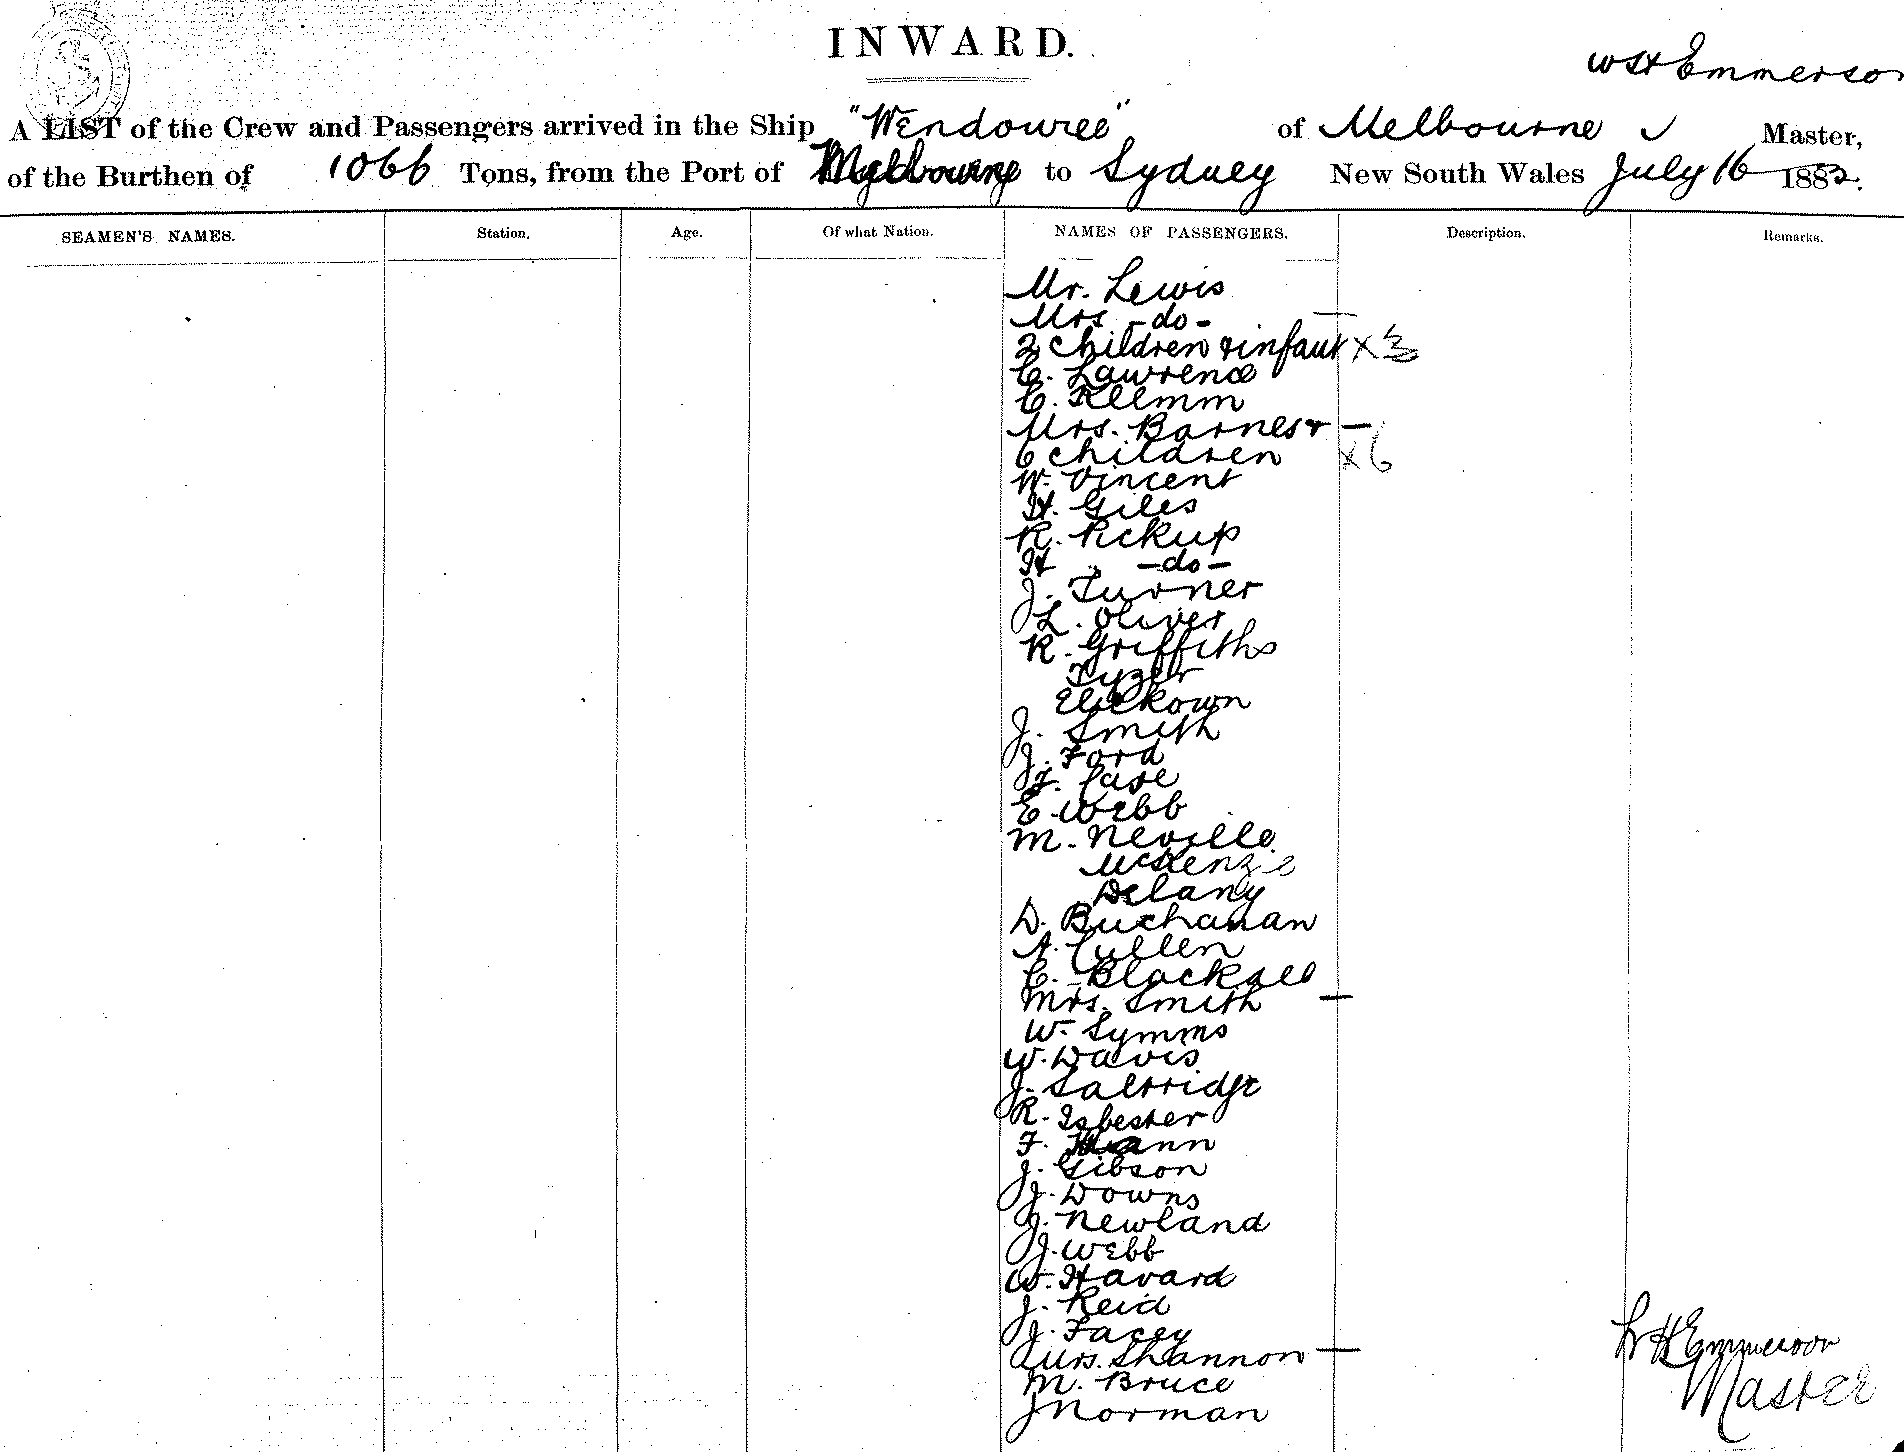 INWARD.
WH Emmerson
A LIST of the Crew and Passengers arrived in the Ship "Wendouree" of Melbourne Master,
of the Burthen of 1066 Tons, from the Port of Melbourne to Sydney New South Wales July 16 1882.
SEAMEN'S NAMES. Station. Age. Of what Nation. NAMES OF PASSENGERS. Description. Remarks.
Mr. Lewis
Mrs -do-
2 children & infant x 3
C. Lawrence
C. Klemm
Mrs. Barnes &
6 children x 6
W. Vincent
H. Giles
R. Pickup
H -do-
J. Turner
L. Oliver
R. Griffiths
Tyzer
J. Smith
J. Ford
F. Case
E. Webb
M. Neville
McKenzie
Delany
D. Buchanan
A. Cullen
C. Blacksell
Mrs. Smith
W. Symms
W. Davis
J. Saltridge
R. Isbester
F.
J. Gibson
J. Downs
J. Newland
J. Webb
W. Havard
J. Reid
J. Facey
Mrs. Shannon
M. Bruce
J Norman
WH Emmerson
Master